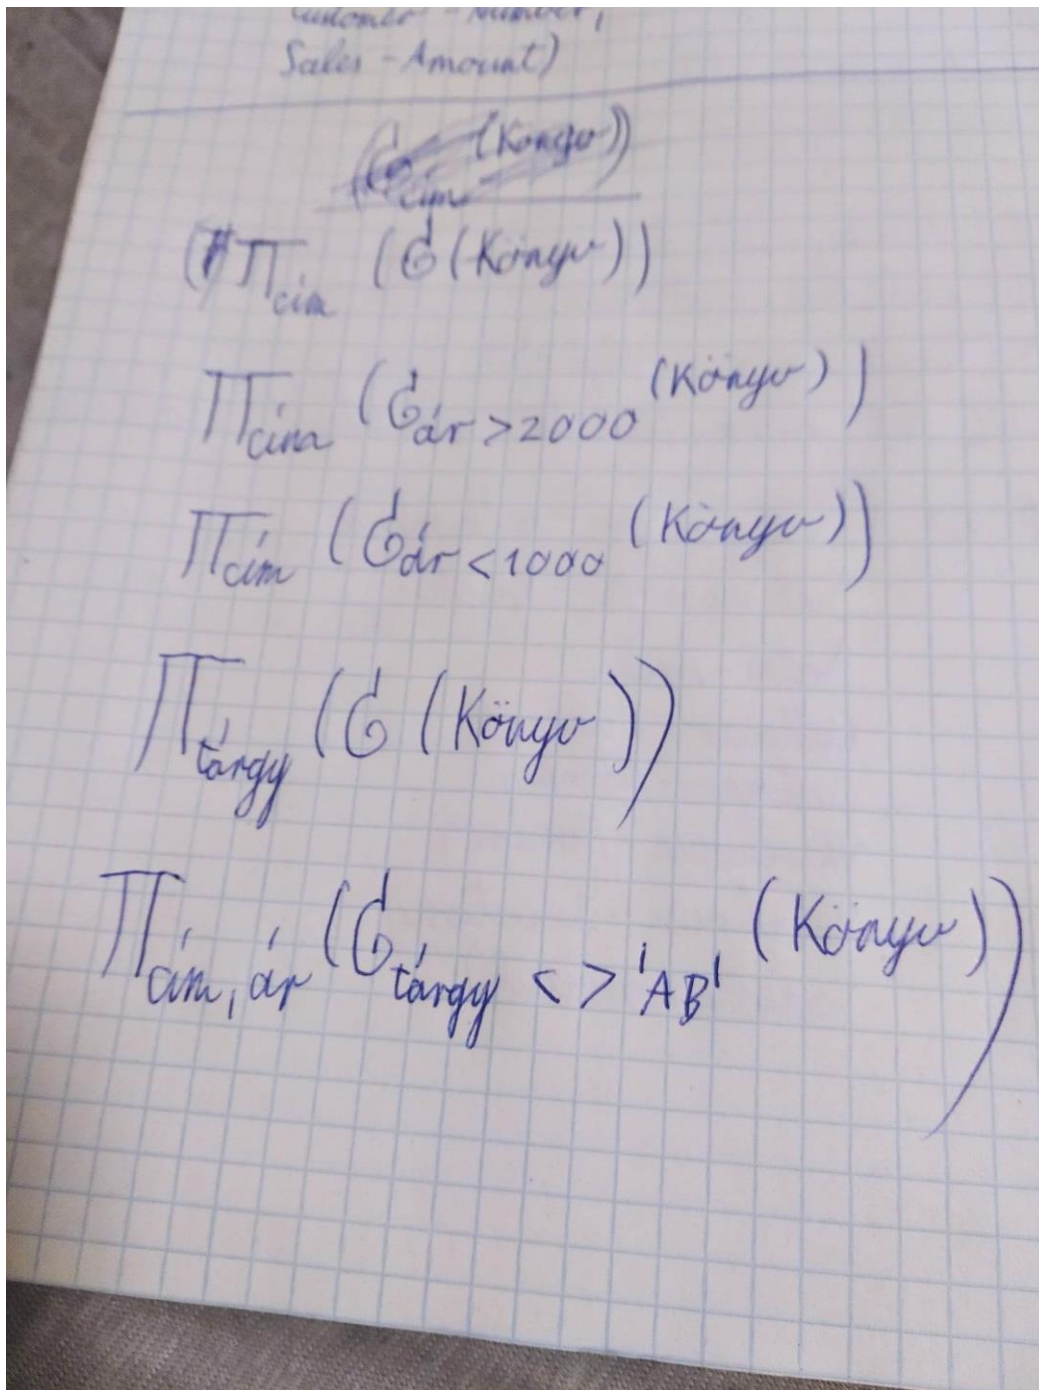 Customer - Number,
Sales - Amount)
(σcím (Könyv))
(Π Πcím (σ(Könyv))
Πcím (σár>2000 (Könyv))
Πcím (σár<1000 (Könyv))
Πtárgy (σ (Könyv))
Πcím, ár (σtárgy <> 'AB' (Könyv))